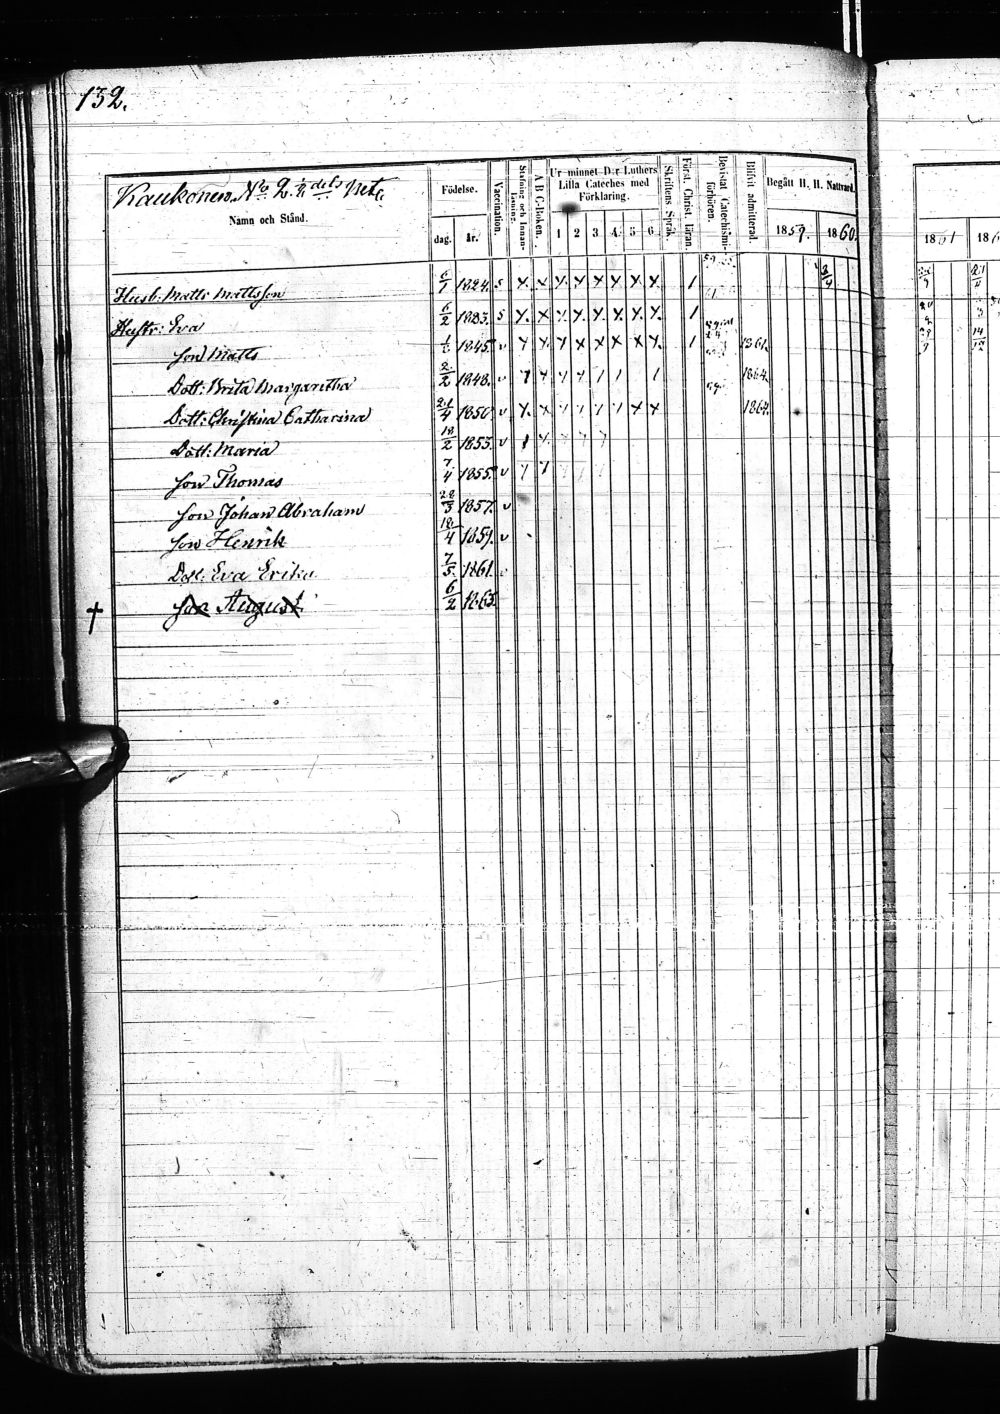 132.
Kaukonen No 2. ½ dels
Namn och Stånd.
Födelse.
dag. år.
Vaccination.
Stafning och Innanläsning.
A B C-Boken.
Ur minnet D:r Luthers Lilla Cateches med Förklaring.
1 2 3 4 5 6
Skriftens Språk.
Först. Christ. läran.
Bevistat Catechismi-förhören.
Blifvit admitterad.
Begått H. H. Nattvard.
1859. 1860.
1861
Husb: Matts Mattsson 6/1 1824. s x x x x x x x x 1 3/4
Hustr: Eva 6/2 1823. s x x x x x x x x 1
Son Matts 1845. v 1861.
Dott: Brita Margaretha 2/2 1848. v 1864.
Dott: Christina Catharina 21/4 1850 v 1864.
Dott: Maria 18/2 1853. v
Son Thomas 7/4 1855. v
Son Johan Abraham 28/3 1857. v
Son Henrik 18/4 1859. v
Dott: Eva Erika 7/5 1861.
† Son August 6/2 1863.